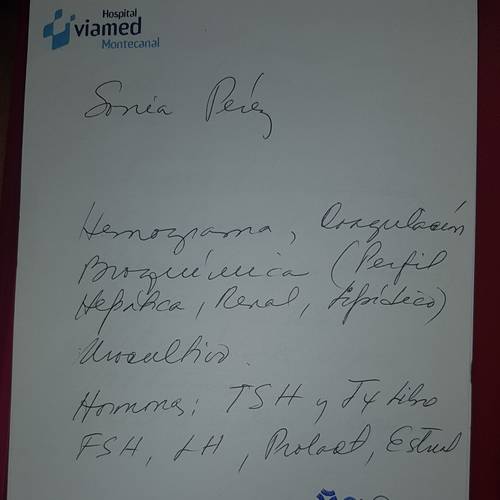 Hospital
viamed
Montecanal
Sonia Pérez
Hemograma, Coagulación
Bioquímica (Perfil
Hepática, Renal, Lipídico)
Urocultivo.
Hormonas: TSH y T4 Libre
FSH, LH, Prolact, Estrad